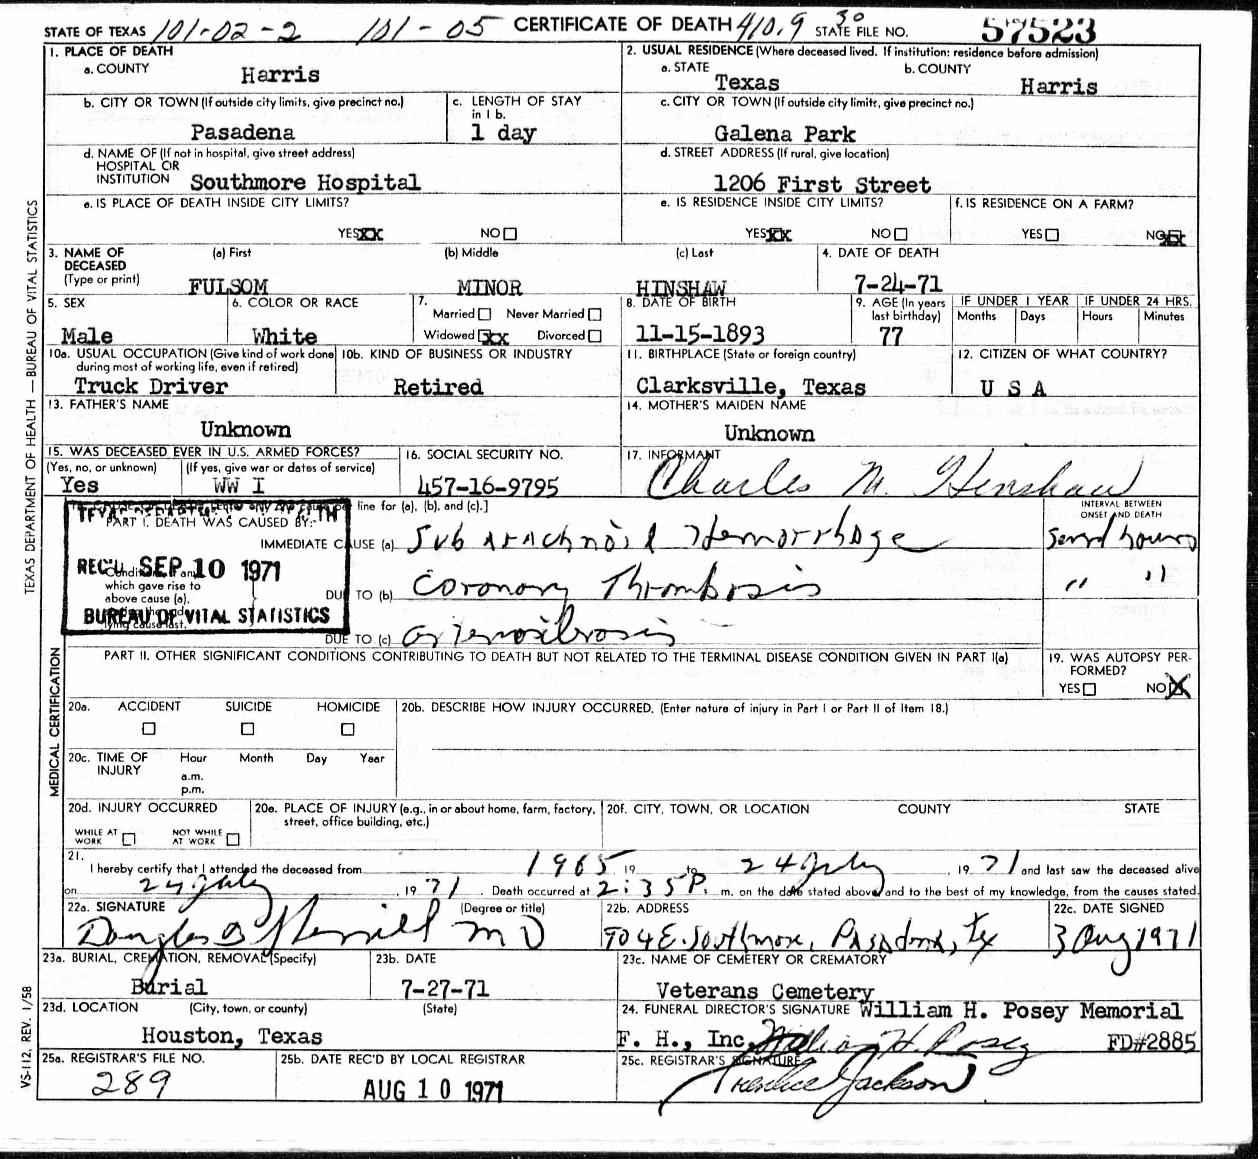 STATE OF TEXAS 101-02-2 101-05 CERTIFICATE OF DEATH 410.9 30 STATE FILE NO. 57523
1. PLACE OF DEATH
a. COUNTY Harris
2. USUAL RESIDENCE (Where deceased lived. If institution: residence before admission)
a. STATE Texas
b. COUNTY Harris
b. CITY OR TOWN (If outside city limits, give precinct no.) Pasadena
c. LENGTH OF STAY in 1 b. 1 day
c. CITY OR TOWN (If outside city limits, give precinct no.) Galena Park
d. NAME OF (If not in hospital, give street address)
HOSPITAL OR
INSTITUTION Southmore Hospital
d. STREET ADDRESS (If rural, give location) 1206 First Street
e. IS PLACE OF DEATH INSIDE CITY LIMITS?
YES XX NO
e. IS RESIDENCE INSIDE CITY LIMITS?
YES XX NO
f. IS RESIDENCE ON A FARM?
YES NO XX
3. NAME OF DECEASED (Type or print)
(a) First FULSOM
(b) Middle MINOR
(c) Last HINSHAW
4. DATE OF DEATH 7-24-71
5. SEX Male
6. COLOR OR RACE White
7. Married Never Married
Widowed xx Divorced
8. DATE OF BIRTH 11-15-1893
9. AGE (In years last birthday) 77
IF UNDER 1 YEAR Months Days
IF UNDER 24 HRS. Hours Minutes
10a. USUAL OCCUPATION (Give kind of work done during most of working life, even if retired) Truck Driver
10b. KIND OF BUSINESS OR INDUSTRY Retired
11. BIRTHPLACE (State or foreign country) Clarksville, Texas
12. CITIZEN OF WHAT COUNTRY? U S A
13. FATHER'S NAME Unknown
14. MOTHER'S MAIDEN NAME Unknown
15. WAS DECEASED EVER IN U.S. ARMED FORCES?
(Yes, no, or unknown) Yes
(If yes, give war or dates of service) WW I
16. SOCIAL SECURITY NO. 457-16-9795
17. INFORMANT Charles M. Henshaw
line for (a), (b), and (c).]
PART I. DEATH WAS CAUSED BY:
INTERVAL BETWEEN ONSET AND DEATH
IMMEDIATE CAUSE (a) Sub arachnoid Hemorrhage hours
which gave rise to
above cause (a),
DUE TO (b) Coronary Thrombosis " "
lying cause last.
DUE TO (c)
REC'D SEP 10 1971
BUREAU OF VITAL STATISTICS
PART II. OTHER SIGNIFICANT CONDITIONS CONTRIBUTING TO DEATH BUT NOT RELATED TO THE TERMINAL DISEASE CONDITION GIVEN IN PART I(a)
19. WAS AUTOPSY PERFORMED?
YES NO X
20a. ACCIDENT SUICIDE HOMICIDE
20b. DESCRIBE HOW INJURY OCCURRED. (Enter nature of injury in Part I or Part II of Item 18.)
20c. TIME OF INJURY Hour Month Day Year
a.m.
p.m.
20d. INJURY OCCURRED
WHILE AT WORK NOT WHILE AT WORK
20e. PLACE OF INJURY (e.g., in or about home, farm, factory, street, office building, etc.)
20f. CITY, TOWN, OR LOCATION COUNTY STATE
21.
I hereby certify that I attended the deceased from 1965 19 to 24 July, 19 71 and last saw the deceased alive
on 24 July, 19 71. Death occurred at 2:35 P. m. on the date stated above, and to the best of my knowledge, from the causes stated.
22a. SIGNATURE (Degree or title) Douglas B MD
22b. ADDRESS E. Southmore, Pasadena, Tx
22c. DATE SIGNED 3 Aug 1971
23a. BURIAL, CREMATION, REMOVAL (Specify) Burial
23b. DATE 7-27-71
23c. NAME OF CEMETERY OR CREMATORY Veterans Cemetery
23d. LOCATION (City, town, or county) (State) Houston, Texas
24. FUNERAL DIRECTOR'S SIGNATURE William H. Posey Memorial
F. H., Inc. William H. Posey FD#2885
25a. REGISTRAR'S FILE NO. 289
25b. DATE REC'D BY LOCAL REGISTRAR AUG 10 1971
25c. REGISTRAR'S SIGNATURE Jackson
TEXAS DEPARTMENT OF HEALTH — BUREAU OF VITAL STATISTICS
MEDICAL CERTIFICATION
VS-112. REV. 1/58